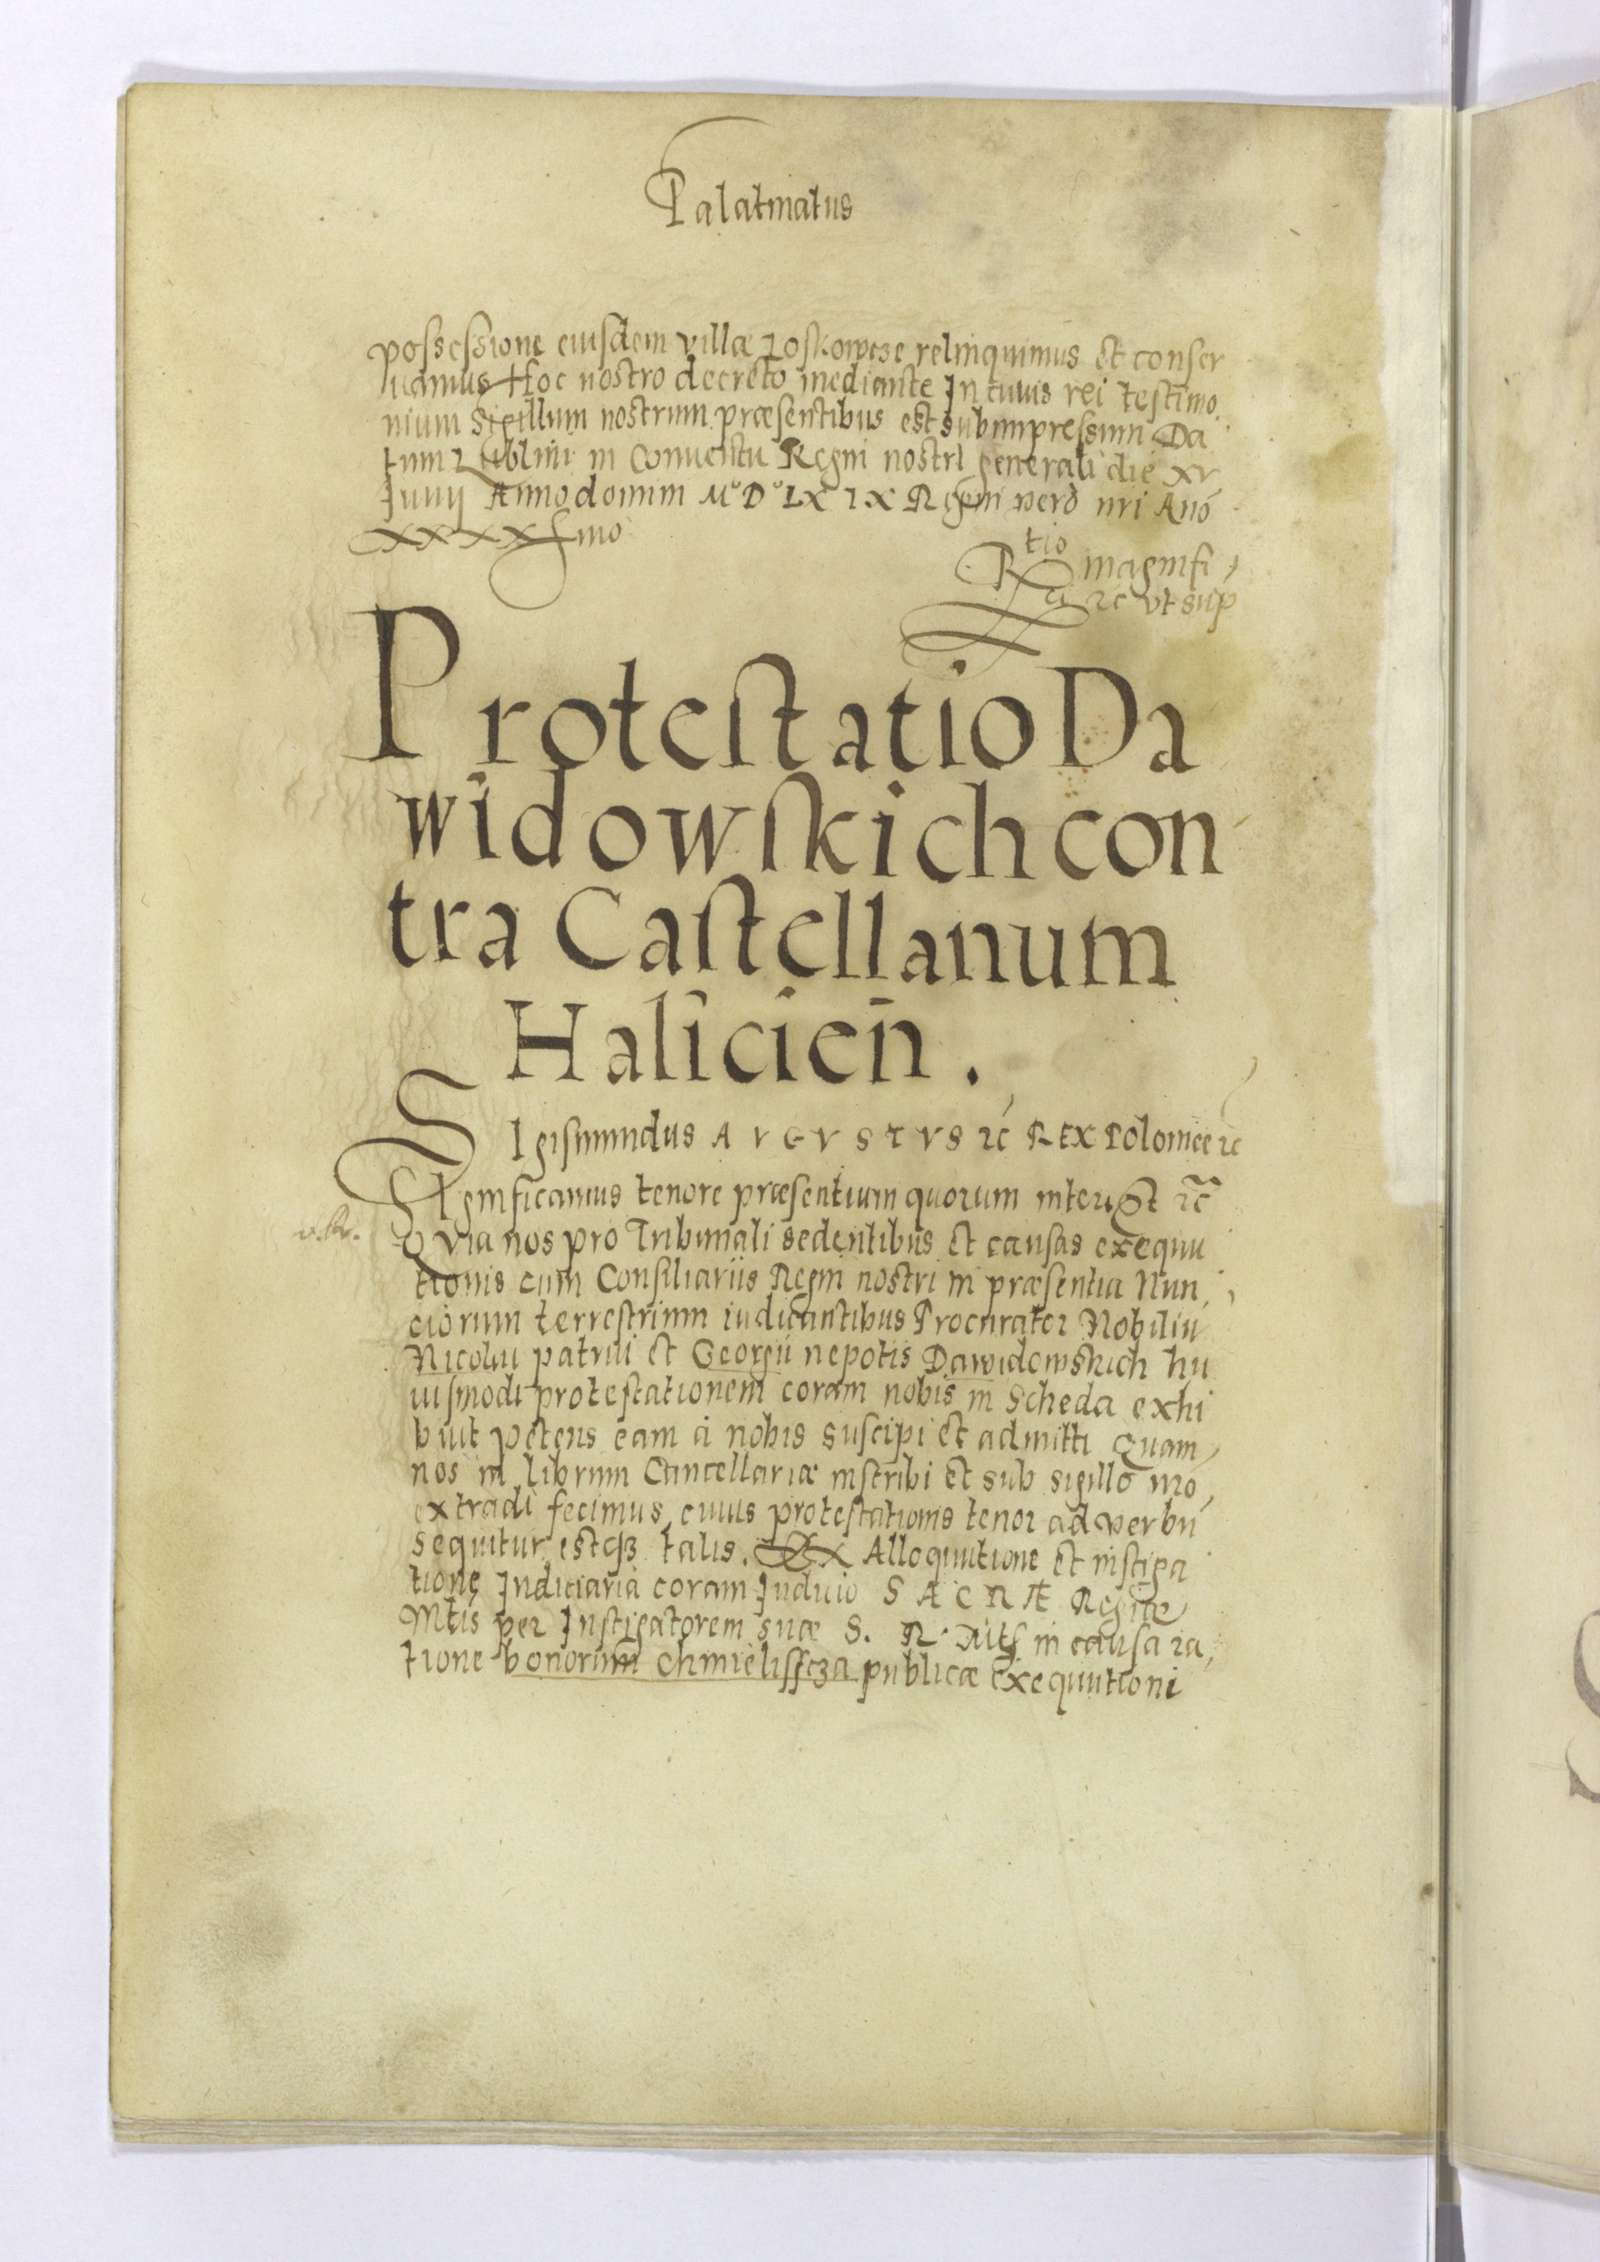 Palatinatus
possessione eiusdem villæ Loskowcze relinquimus et conser
uamus Hoc nostro decreto mediante In cuius rei testimo
nium Sigillum nostrum præsentibus est subimpressum Da
tum Lublini in Conuentu Regni nostri generali die XV
Iunij Anno domini M D LX IX Regni vero nri Ano
XXXX mo
Rtio magnifi
ci ꝛc vt sup
Protestatio Da
widowskich con
tra Castellanum
Halicień.
Sigismundus AVGVSTVS ꝛc REX Poloniæ ꝛc
Significamus tenore præsentium quorum interest ꝛc
Quia nos pro Tribunali sedentibus et causas exequu
tionis cum Consiliariis Regni nostri in præsentia Nun
ciorum terrestrium iudicantibus Procurator Nobiliū
Nicolai patrui et Georgii nepotis Dawidowskich hu
iusmodi protestationem coram nobis in Scheda exhi
buit petens eam a nobis suscipi et admitti Quam
nos in librum Cancellariæ inscribi et sub sigillo nro
extradi fecimus cuius protestationis tenor ad verbū
sequitur estq3 talis. Ex Alloquutione et instiga
tione Iudiciaria coram Iudicio SACRÆ Regiæ
Mtis per Instigatorem suæ S. R. Mts in causa ra
tione bonorum Chmielisscza publicæ Exequutioni